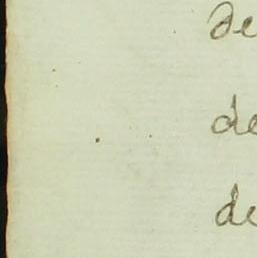 de
de
de